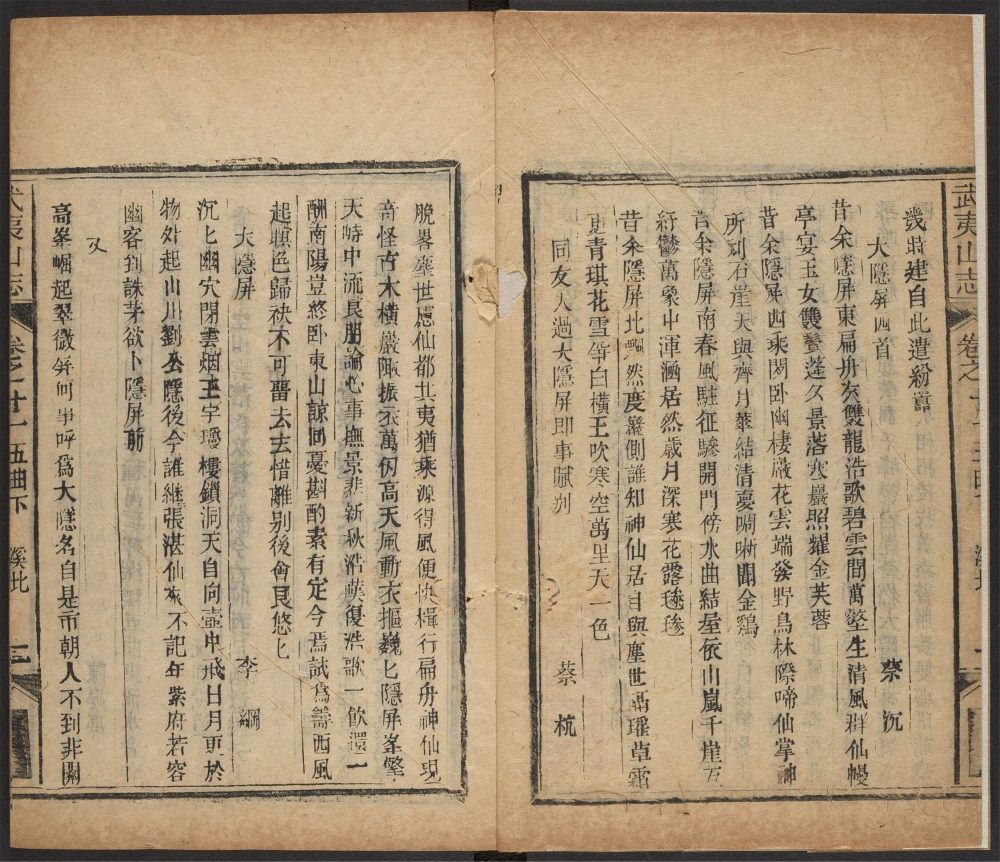 武夷山志
卷之十
歲時建自此遣紛囂
大隱屏四首
蔡沉
昔余隱屏東扁舟炎雙龍浩歌碧雲間萬壑生清風群仙幔
亭宴玉女雙鬟蓬久景落寒巖照耀金芙蓉
昔余隱屏西乘閑卧幽棲巖花雲端發野鳥林際啼仙掌
所刻石崖天與齊月華結清夢啁哳聞金鷄
昔余隱屏南春風駐征驂開門傍水曲結屋依山嵐千崖
紆鬱萬象中渾涵居然歲月深寒花露毿毿
昔余隱屏北飄然度巖側誰知神仙居自與塵世隔瑤草霜
更青琪花雪笋白橫玉吹寒空萬里天一色
同友人過大隱屏即事賦別
蔡杭
晚畧塵世慮仙都共夷猶乘源得風便快楫行扁舟神仙現
奇怪古木橫巖陬振衣萬仞高天風動衣摳巍巍隱屏峯擎
天峙中流長朋論心事撫景悲新秋浩嘆復浩歌一飲還一
酬南陽豈終卧東山諒同憂斟酌素有定今焉試爲籌西風
起瞋色歸袂不可畱去去惜離别後會良悠匕
大隱屏
李綱
沉匕幽穴閉雲烟玉宇瓊樓鎖洞天自向壺中飛日月更於
物外起山川劉公隱後今誰繼張湛仙來不記年紫府若容
幽客到誅茅欲卜隱屏前
又
高峯崛起翠微 何事呼爲大隱名自是市朝人不到非關
武夷山志
卷之十
五曲下
溪北
三